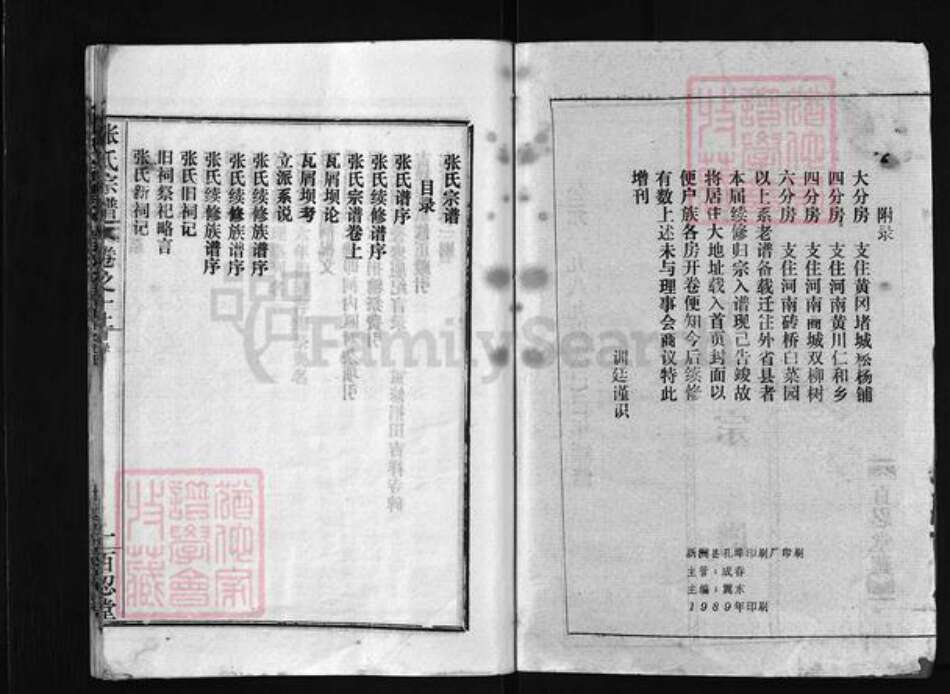 附录
大分房 支住黄冈堵城松杨铺
四分房 支住河南黄川仁和乡
四分房 支住河南商城双柳树
六分房 支住河南砖桥白菜园
以上系老谱备载迁往外省县者
本届续修归宗入谱现已告竣故
将居住大地址载入首页封面以
便户族各房开卷便知今后续修
有数上述未与理事会商议特此
增刊
训廷谨识
新洲县孔埠印刷厂印刷
主管：成春
主编：冀东
1989年印刷
张氏宗谱
目录
张氏谱序
张氏续修谱序
张氏宗谱卷上
瓦屑坝论
瓦屑坝考
立派系说
张氏续修族谱序
张氏续修族谱序
张氏续修族谱序
张氏旧祠记
旧祠祭祀略言
张氏新祠记
张氏宗谱 卷之
百忍堂
FamilySearch